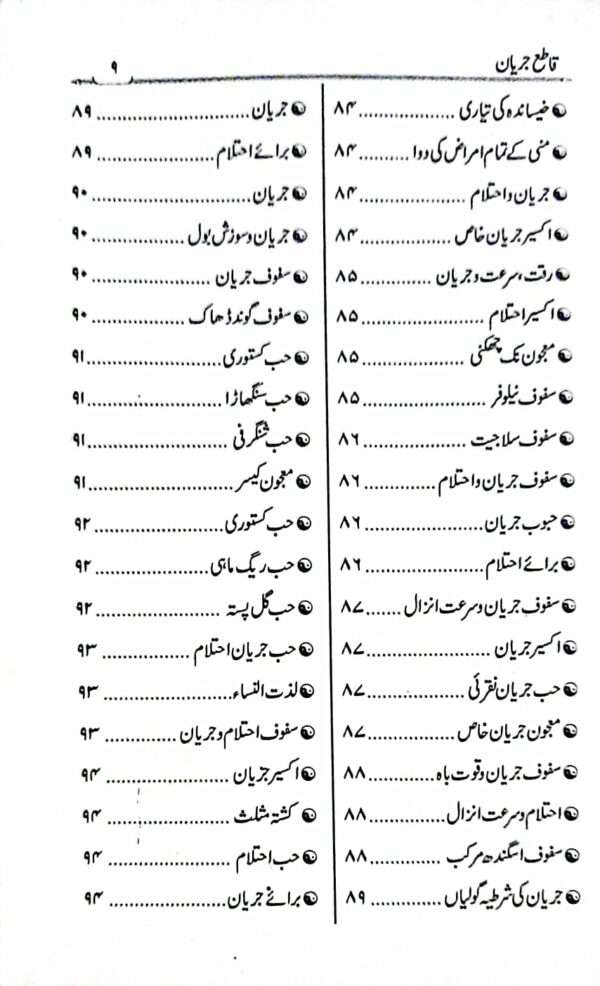 قاطع جریان ۹
خیساندہ کی تیاری ................... ۸۴
منی کے تمام امراض کی دوا .......... ۸۴
جریان و احتلام ................... ۸۴
اکسیر جریان خاص .................. ۸۴
رقت، سرعت و جریان .............. ۸۵
اکسیر احتلام ................... ۸۵
معجون نک چھکنی .................. ۸۵
سفوف نیلوفر ....................... ۸۵
سفوف سلاجیت ................... ۸۶
سفوف جریان و احتلام ............. ۸۶
حبوب جریان ....................... ۸۶
برائے احتلام ....................... ۸۶
سفوف جریان و سرعت انزال ....... ۸۷
اکسیر جریان ....................... ۸۷
حب جریان نقرئی .................. ۸۷
معجون جریان خاص ................ ۸۷
سفوف جریان و قوت باہ ............ ۸۸
احتلام و سرعت انزال ................ ۸۸
سفوف اسگندھ مرکب ............. ۸۸
جریان کی شرطیہ گولیاں ............. ۸۹
جریان ............................. ۸۹
برائے احتلام ....................... ۸۹
جریان ............................. ۹۰
جریان و سوزش بول ................ ۹۰
سفوف جریان ....................... ۹۰
سفوف گوند ڈھاک .................. ۹۰
حب کستوری ....................... ۹۱
حب سنگھاڑا ....................... ۹۱
حب شنگرفی ....................... ۹۱
معجون کیسر ....................... ۹۱
حب کستوری ....................... ۹۲
حب ریگ ماہی ....................... ۹۲
حب گل پستہ ....................... ۹۲
حب جریان احتلام ................ ۹۳
لذت النساء ....................... ۹۳
سفوف احتلام و جریان ............. ۹۳
اکسیر جریان ....................... ۹۴
کشتہ مثلث ....................... ۹۴
حب احتلام ....................... ۹۴
برائے جریان ....................... ۹۴